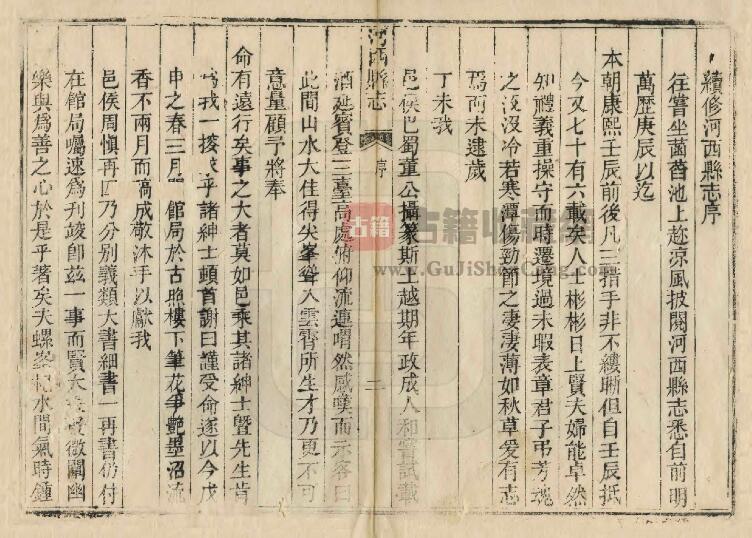 續修河西縣志序
往嘗坐菡萏池上趂凉風披閱河西縣志悉自前明
萬歷庚辰以迄
本朝康熙壬辰前後凡三措手非不縷晰但自壬辰抵
今又七十有六載矣人士彬彬日上賢夫婦能卓然
知禮義重操守而時遷境過未暇表章君子弔芳魂
之沒沒冷若寒潭傷勁節之凄凄薄如秋草爰有志
焉而未逮歲
丁未我
邑侯巴蜀董公攝篆斯土越期年政成人和嘗試載
酒延賓登三臺高處俯仰流連喟然感嘆而示客曰
此間山水大佳得尖峯聳入雲霄所生才乃更不可
意量顧予將奉
命有遠行矣事之大者莫如邑乘其諸紳士曁先生肯
為我一搜求乎諸紳士頓首謝曰謹受命遂以今戊
申之春三月 館局於古照樓下筆花爭艷墨沼流
香不兩月而稿成敬沐手以獻我
邑侯周慎再四乃分別義類大書細書一再書仍付
在館局囑速為刋竣卽兹一事而賢大 微闡幽
樂與為善之心於是乎著矣夫螺峯 水間氣時鍾
河西縣志
序
二
古籍收藏網
www.GuJiShouCang.com